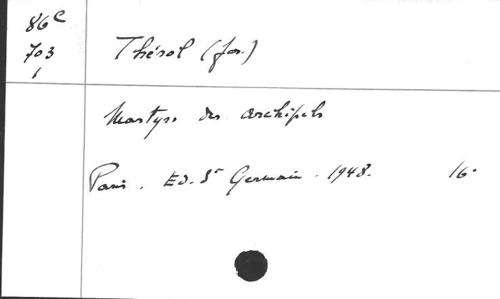 86c
703
1
Thérol (Jos.)
Martyrs des archipels
Paris. Ed. St Germain. 1948. 16°